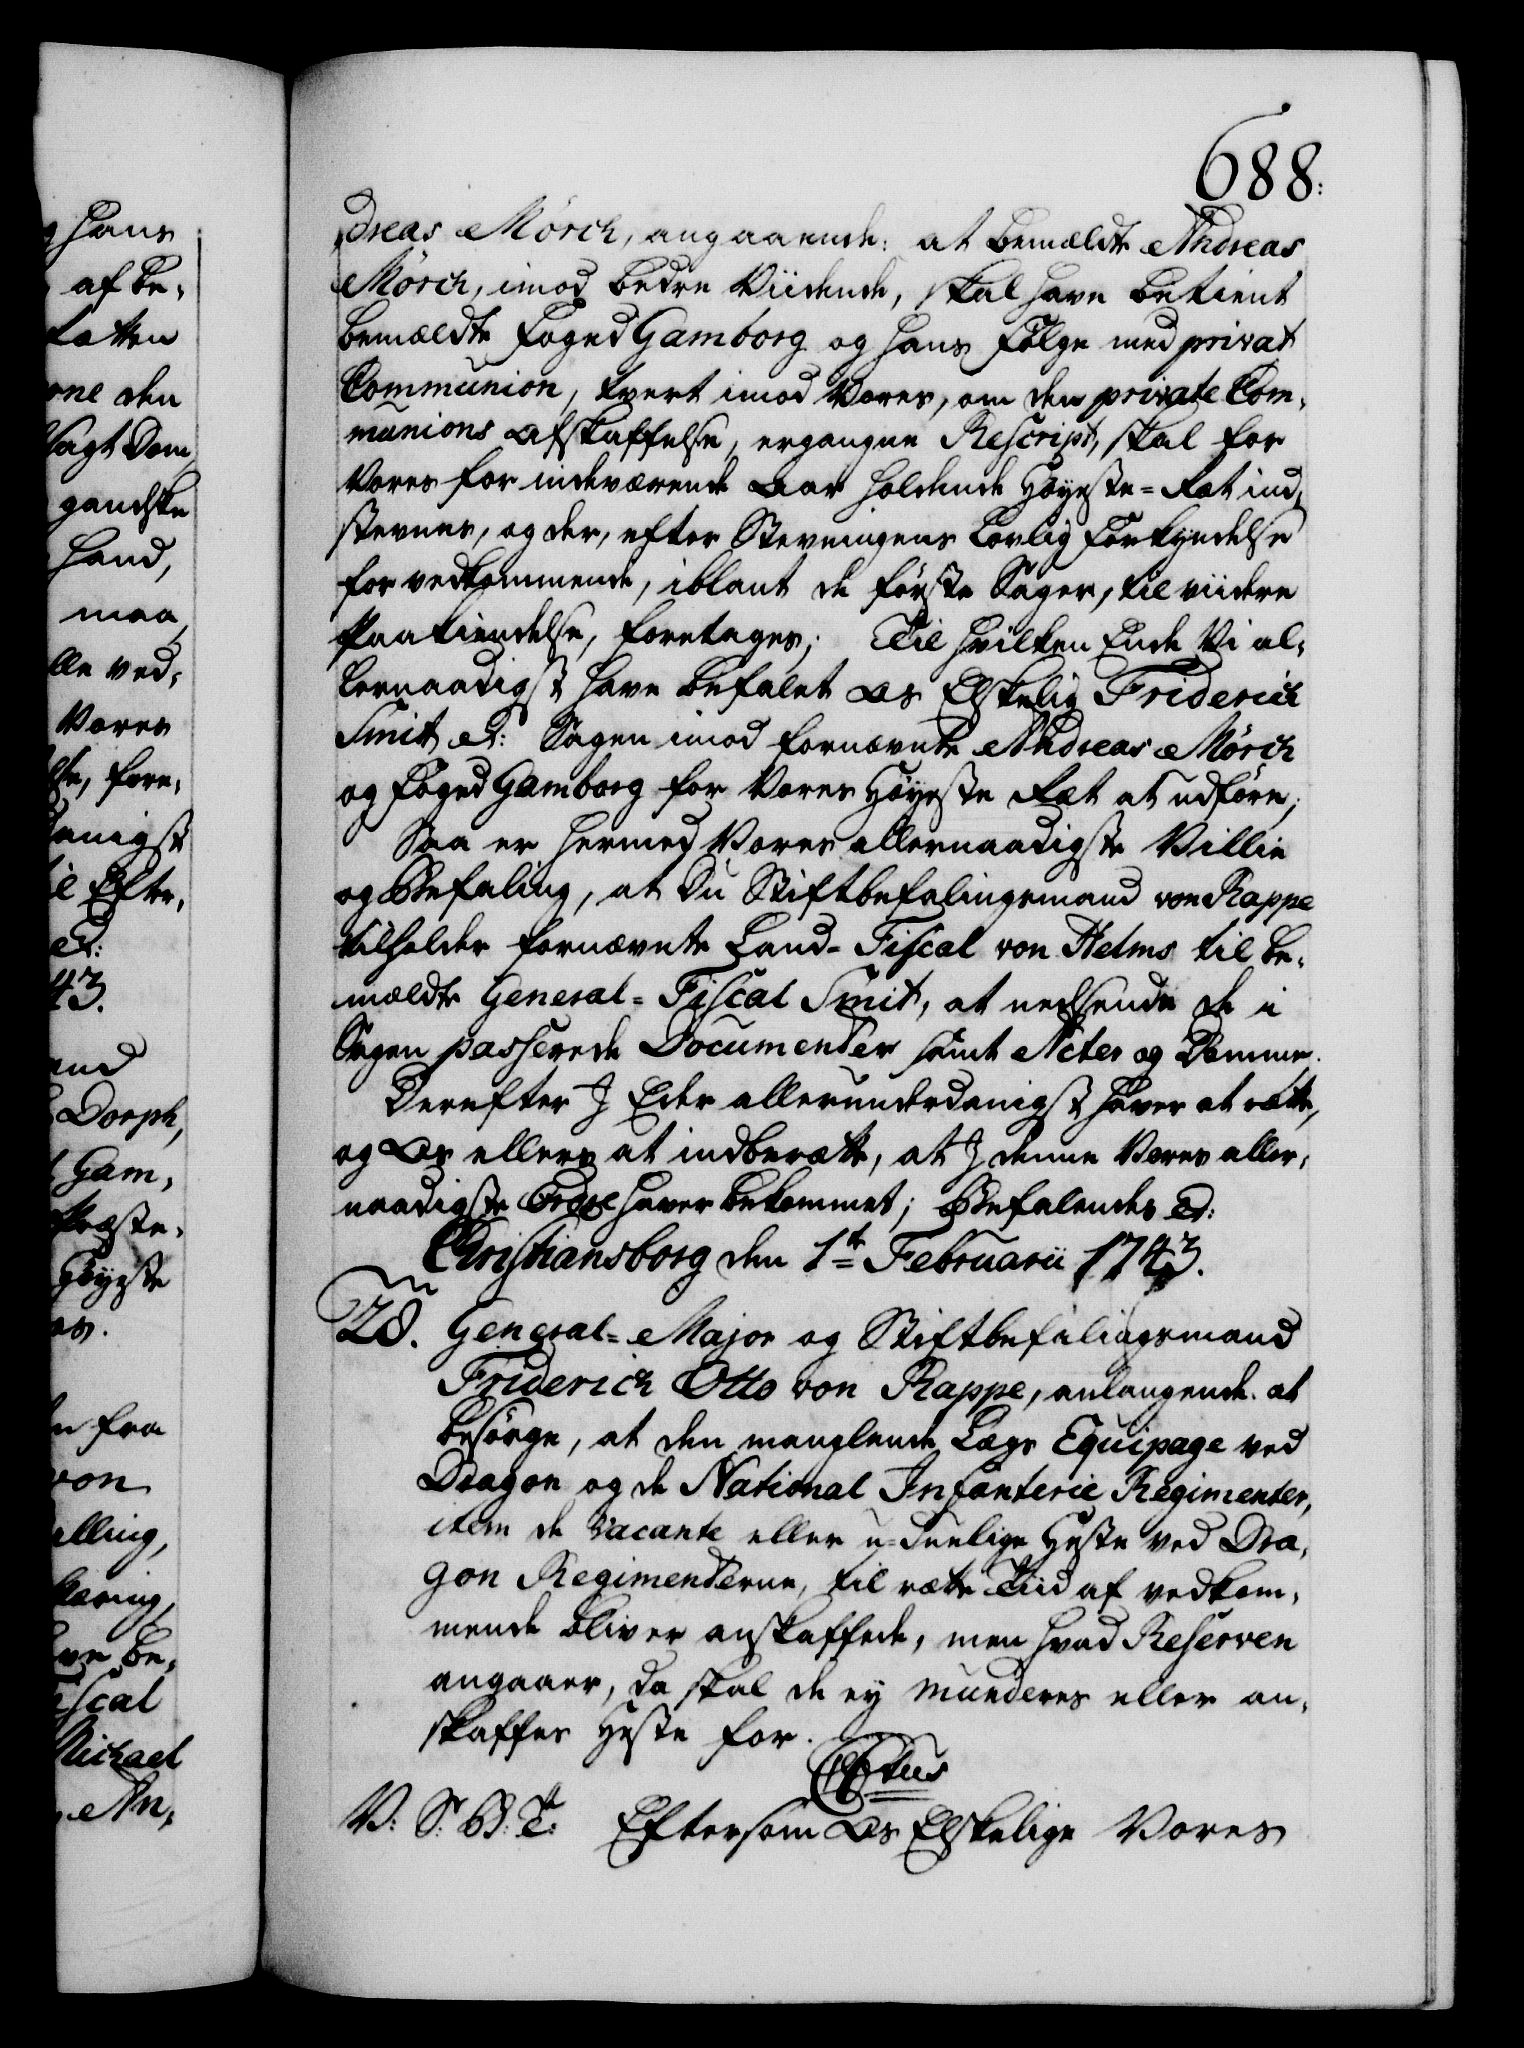 688:
dreas Mörch, angaaende: at bemældte Andreas
Mörch, imod bedre Viidende, skal have betient
bemældte Foged Gamborg og hans Fölge med privat
Communion, tvert imod Vores, om den private Com,
munions Afskaffelse, ergangne Rescript, skal for
Vores for indeværende Aar holdende Höyeste-Ræt ind,
stevnes, og der, efter Stevningens lovlig Forkyndelse
for vedkommende, iblant de förste Sager, til viidere
Paakiendelse, foretages; Til hvilken Ende Vi al,
lernaadigst have befalet Os Elskelig Friderich
Smit etc: Sagen imod fornævnte Andreas Mörch
og Foged Gamborg for Vores Höyeste Ræt at udföre;
Saa er hermed Vores allernaadigste Villie
og Befaling, at Du Stiftbefalingsmand von Rappe
tilholder fornævnte Land-Fiscal von Helms til be,
mældte General-Fiscal Smit, at nedsende de i
Sagen passerede Documenter samt Acter og Domme.
Derefter I Eder allerunderdanigst haver at rætte,
og Os ellers at indberætte, at I denne Vores aller,
naadigste Ordre haver bekommet; Befalendes etc:
Christiansborg den 1te Februarii 1743.
28. General-Major og Stiftbefalingsmand
Friderich Otto von Rappe, anlangende at
besörge, at den manglende Lægs Equipage ved
Dragon og de National Infanterie Regimenter,
item de vacante eller u-duelige Heste ved Dra,
gon Regimenterne, til rætte Tiid af vedkom,
mende bliver anskaffede, men hvad Reserven
angaaer, da skal de ey munderes eller an,
skaffes Heste for.
V: S: B: T: Eftersom Os Elskelige Vores